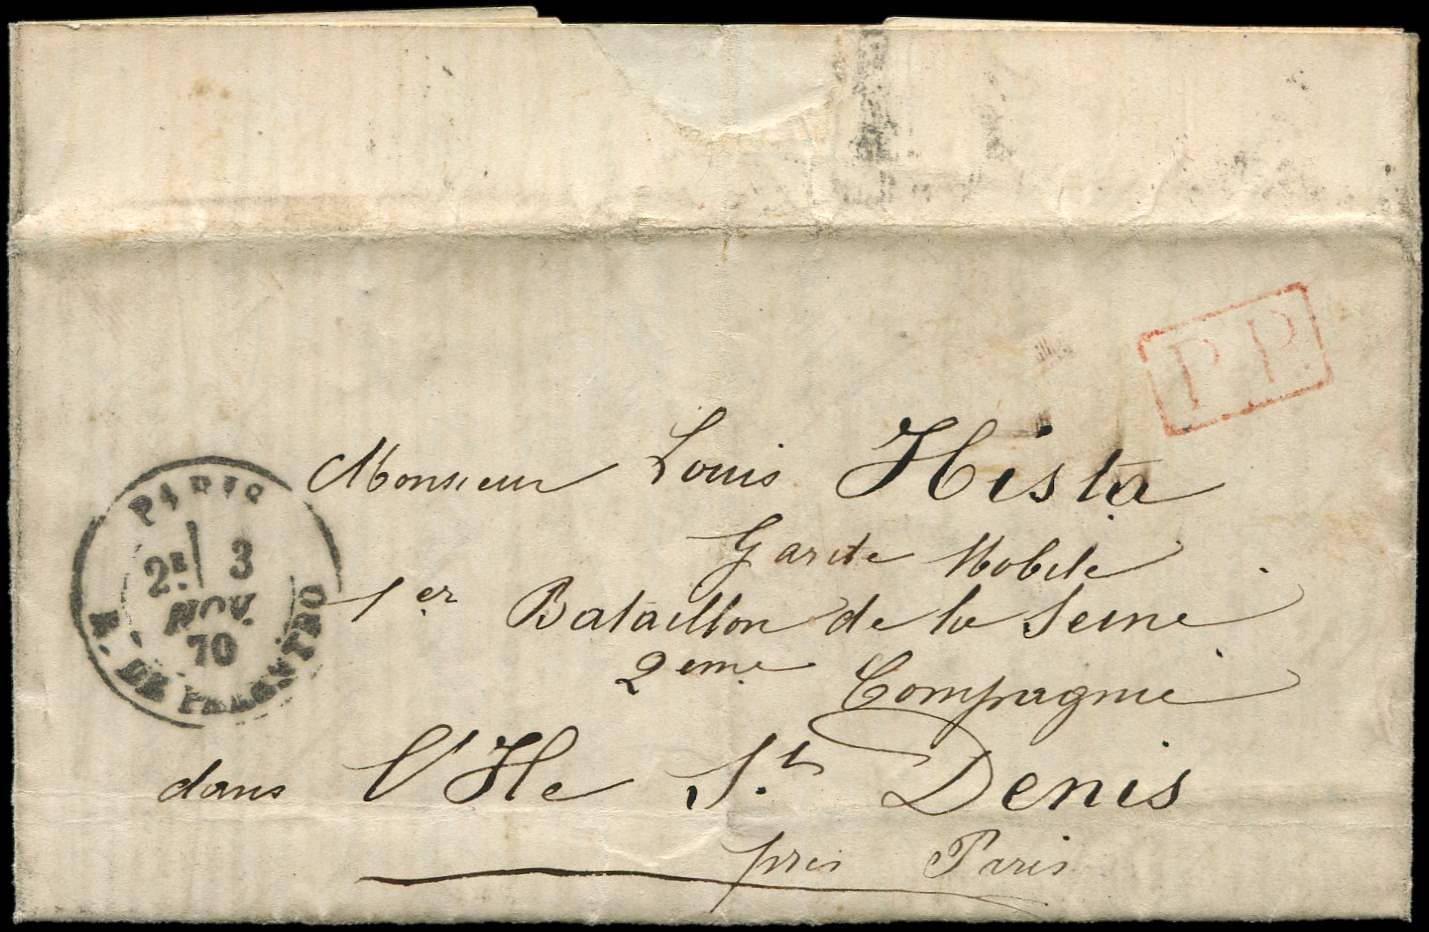 P.P.
PARIS
2E 3
NOV.
70
R. DE PALESTRO
Monsieur Louis Hista
Garde Mobile
1er Bataillon de la Seine
2eme Compagnie
dans l'Ile St. Denis
près Paris